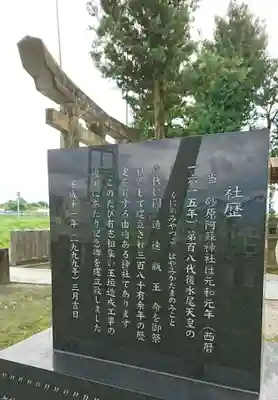 社歴
当 砂原阿蘇神社は元和元年（西暦
一六一五年）第百八代後水尾天皇の
くにのみやつこ はやみかたまのみこと
御代 国造速瓶玉命を御祭
神として建立され三百八十有余年の歴
史を有する由緒ある神社であります
このたび有志相集い玉垣造成工事の
完了にあたり記念碑を建立致しました
平成十一年（一九九九年）三月吉日